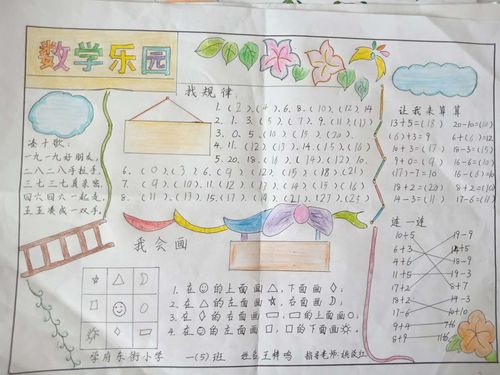 数学乐园
找规律
1.(2)、(4)、6、8、(10)、(12)、14
2. 1、3、(5)、(7)、9、(11)、(13)
3. 0、5、(10)、(15)、(20)、
4. 11、(12)、(13)、14、(15)、(16)
5. 20、18、(16)、(14)、(12)、10、
6.(0)、(3)、6、(9)、(12)、(15)、(18)、(21)
7.(9)、(10)、11、(12)、(13)、(14)、(15)、(16)
8.(11)、(13)、15、(17)、(19)、(21)、(23)
凑十歌:
一九一九好朋友,
二八二八手拉手,
三七三七真亲密,
四六四六一起走,
五五凑成一双手。
让我来算算
13+5=(18) 20-10=(10)
(6)+3=9 6+(6)=12
10+3=(13) 18-3=(15)
9+0=(9) 16-6=(10)
(17)-7=10
18+2=(20) 8+2=(10)
14-3=(11) 17-6=(11)
连一连
10-5 19-9
6+3
4+6 18-9
11+5 19-3
17+2 8+7
18+2 14-3
17-6 10+10
9+4
8+9
我会画
1. 在☺的上面画△,下面画◇;
2. 在△的左面画☆,右面画
3. 在◇的右面画▭,
4. 在☺的左面画□,□的下面画
学府东街小学 一(5)班